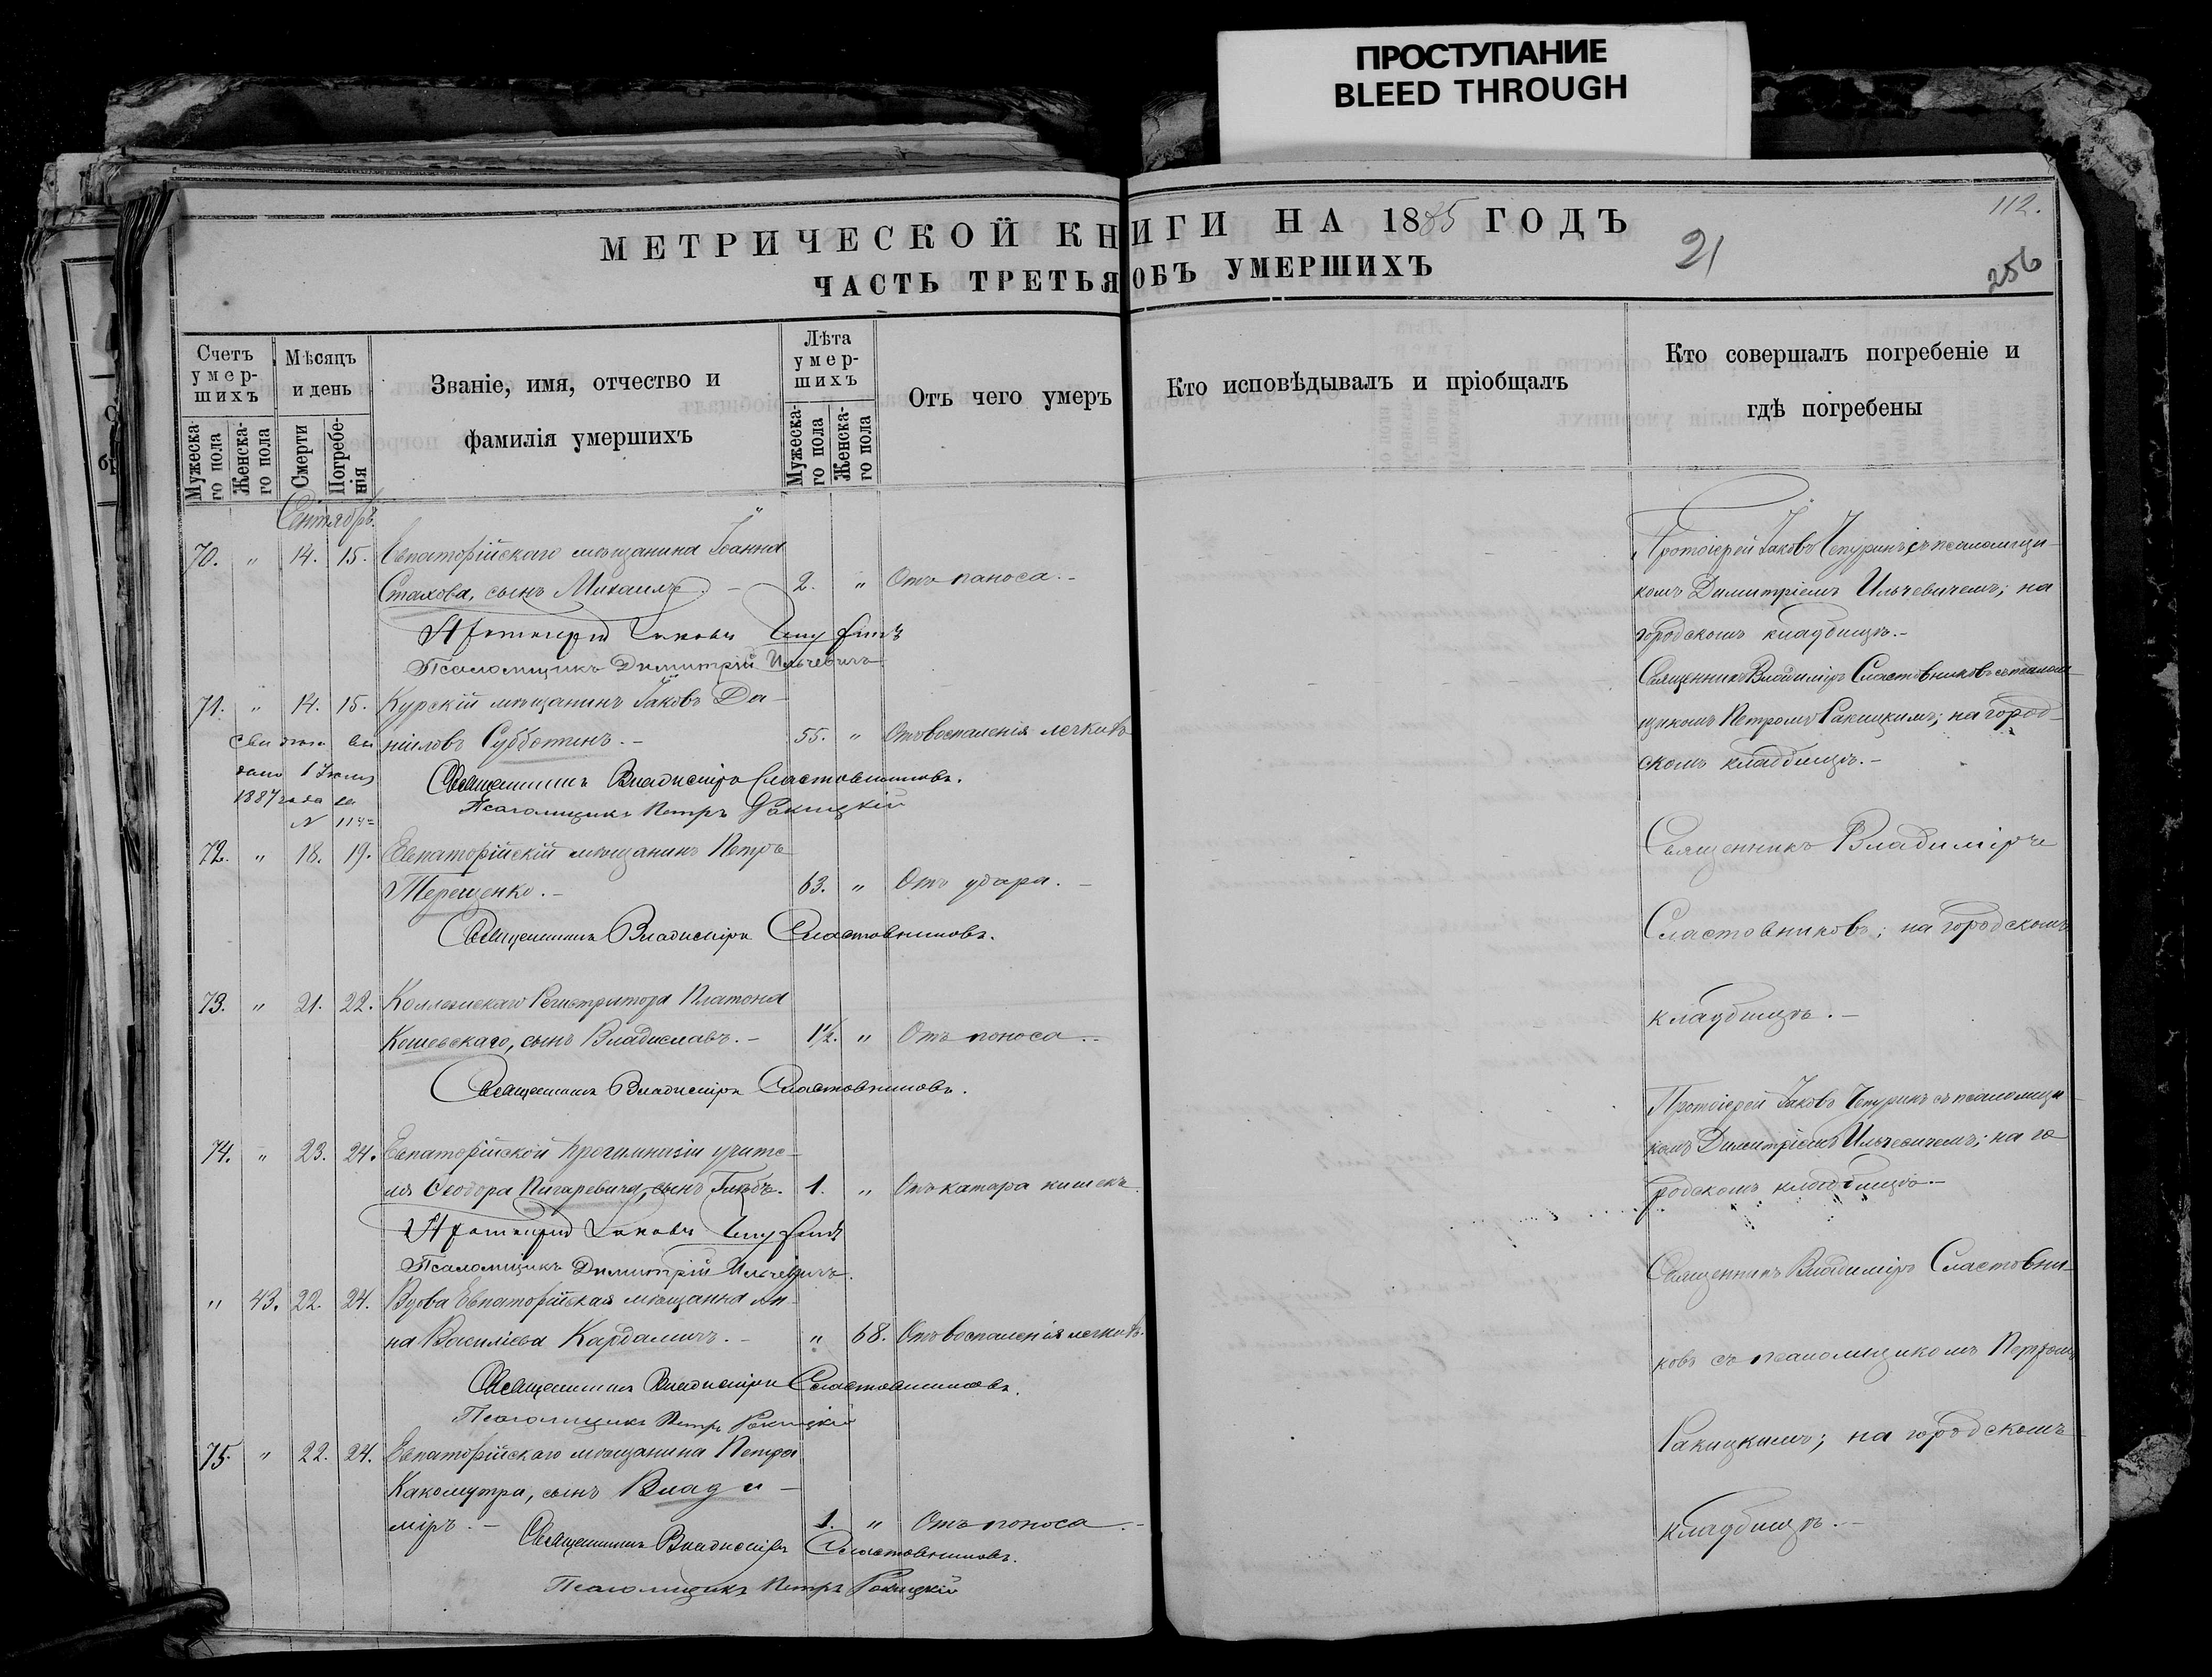 ПРОСТУПАНИЕ
BLEED THROUGH
112.
МЕТРИЧЕСКОЙ КНИГИ НА 1885 ГОДЪ
21
256
ЧАСТЬ ТРЕТЬЯ ОБЪ УМЕРШИХЪ
Счетъ умер-шихъ
Мужеска-го пола
Женска-го пола
Мѣсяцъ и день
Смерти
Погребе-нія
Званіе, имя, отчество и
фамилія умершихъ
Лѣта умер-шихъ
Мужеска-го пола
Женска-го пола
Отъ чего умеръ
Кто исповѣдывалъ и пріобщалъ
Кто совершалъ погребеніе и
гдѣ погребены
Сентябрь.
70. " 14. 15. Евпаторійскаго мѣщанина Іоанна
Стахова, сынъ Михаилъ. – 2. " Отъ паноса. –
Протоіерей Іаковъ Чепуринъ
Псаломщикъ Димитрій Ильчевичъ
Протоіерей Іаковъ Чепуринъ съ псаломщи-
комъ Димитріемъ Ильчевичемъ; на
городскомъ кладбищѣ. –
71. " 14. 15. Курскій мѣщанинъ Іаковъ Да-
ніиловъ Субботинъ. – 55. " Отъ воспаленія легкихъ
Священникъ Владиміръ Сластовниковъ.
Псаломщикъ Петръ Ракицкій
1887 года за
N 114
Священникъ Владиміръ Сластовниковъ съ псалом-
щикомъ Петромъ Ракицкимъ; на город-
скомъ кладбищѣ. –
72. " 18. 19. Евпаторійскій мѣщанинъ Петръ
Терещенко. – 63. " Отъ удара. –
Священникъ Владиміръ Сластовниковъ.
Священникъ Владиміръ
Сластовниковъ; на городскомъ
кладбищѣ. –
73. " 21. 22. Коллежскаго Регистратора Платона
Кошевскаго, сынъ Владиславъ. – 1½. " Отъ поноса. –
Священникъ Владиміръ Сластовниковъ.
74. " 23. 24. Евпаторійской прогимназіи учите-
ля Ѳеодора Пигаревича, сынъ Глѣбъ. 1. " Отъ катара кишекъ
Протоіерей Іаковъ Чепуринъ
Псаломщикъ Димитрій Ильчевичъ.
Протоіерей Іаковъ Чепуринъ съ псаломщи-
комъ Димитріемъ Ильчевичемъ; на го
родскомъ кладбищѣ. –
" 43. 22. 24. Вдова Евпаторійская мѣщанка Ан-
на Василіева Кардамичъ. – " 68. Отъ воспаленія легкихъ.
Священникъ Владиміръ Сластовниковъ.
Псаломщикъ Петръ Ракицкій
75. " 22. 24. Евпаторійскаго мѣщанина Петра
Какомутри, сынъ Влади-
міръ. – 1. " Отъ поноса. –
Священникъ Владиміръ Сластовниковъ.
Псаломщикъ Петръ Ракицкій
Священникъ Владиміръ Сластовни-
ковъ съ псаломщикомъ Петромъ
Ракицкимъ; на городскомъ
кладбищѣ. –